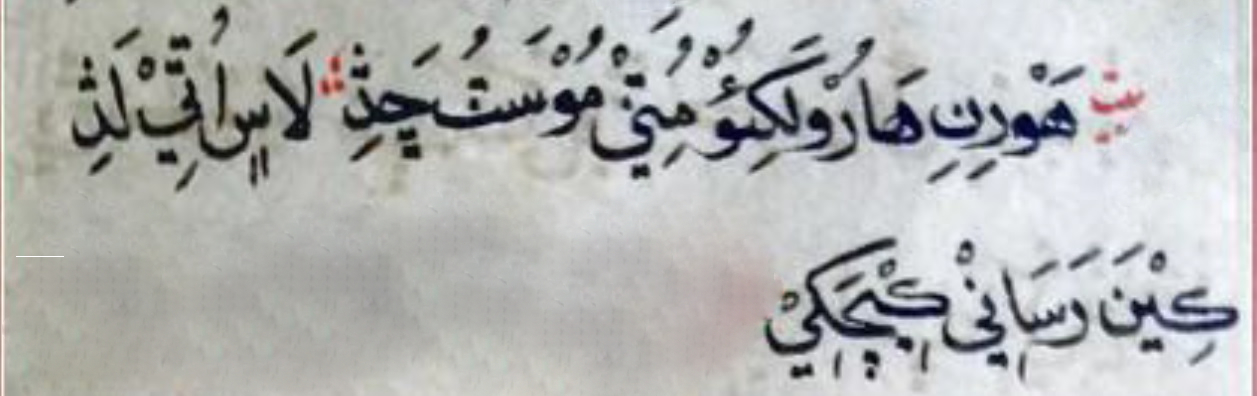 بيت هَوْرِنِ هَارُوْلَكِئُوْ مُتِيْ مُوْسَتُ چَڎِ ؞ لَاسِ اُتِيْ لَڎِ
كِيْنَ رَسَانِيْ كِيْچَكِيْ